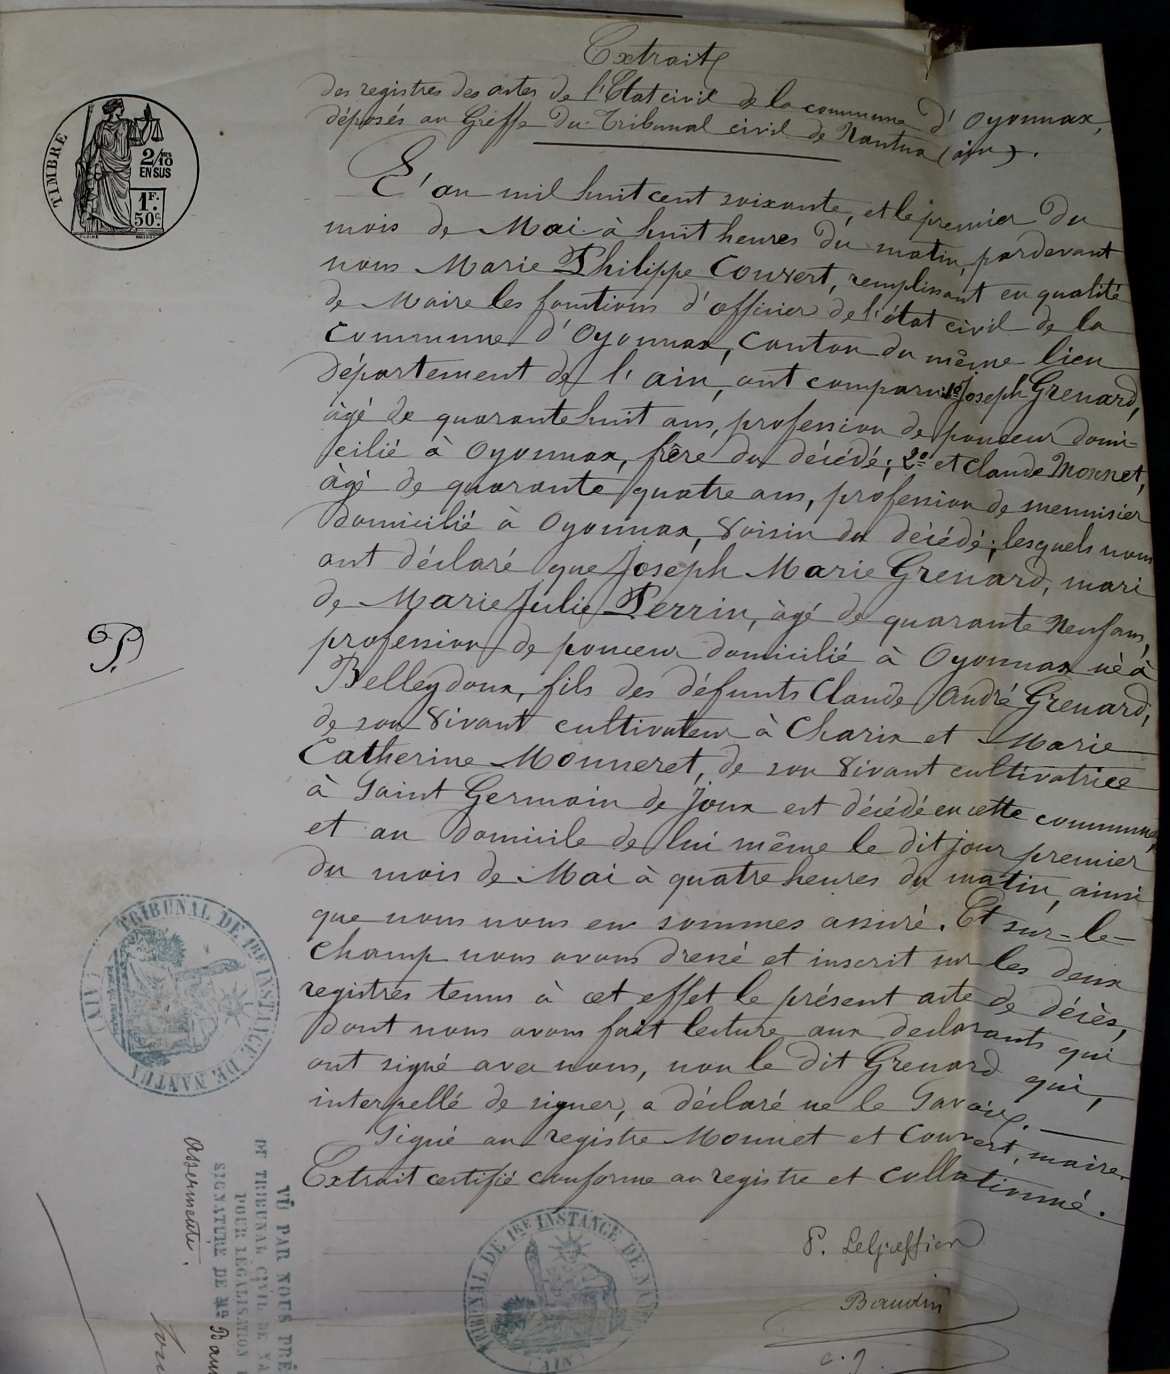 Extrait
des registres des actes de l'Etat civil de la commune d'Oyonnax,
déposés au Greffe du Tribunal civil de Nantua (ain).
L'an mil huit cent soixante, et le premier du
mois de Mai à huit heures du matin, pardevant
nous Marie Philippe Couvert, remplissant en qualité
de Maire les fonctions d'officier de l'état civil de la
Commune d'Oyonnax, Canton du même lieu
département de l'ain, ont comparu: 1º Joseph Grenard,
âgé de quarante huit ans, profession de ponceur domi-
cilié à Oyonnax, frère du décédé; 2º et Claude Monnet,
âgé de quarante quatre ans, profession de menuisier
domicilié à Oyonnax, voisin du décédé; lesquels nous
ont déclaré que Joseph Marie Grenard, mari
de Marie Julie Perrin, âgé de quarante Neuf ans,
profession de ponceur domicilié à Oyonnax né à
Belleydoux, fils des défunts Claude André Grenard,
de son vivant cultivateur à Charix et Marie
Catherine Monneret, de son vivant cultivatrice
à Saint Germain de Joux est décédé en cette commune,
et au domicile de lui même le dit jour premier
du mois de Mai à quatre heures du matin, ainsi
que nous nous en sommes assuré. Et sur-le-
champ nous avons dressé et inscrit sur les deux
registres tenus à cet effet le présent acte de décès,
dont nous avons fait lecture aux declarants qui
ont signé avec nous, non le dit Grenard qui,
interpellé de signer, a déclaré ne le Savoir.
Signé au registre Monnet et Couvert, maire.
Extrait certifié conforme au registre et collationné.
P. Le Greffier
Baudin
c. g.
TIMBRE
2/10 EN SUS
1F. 50C.
P.
TRIBUNAL DE 1RE INSTANCE DE NANTUA
(AIN)
TRIBUNAL DE 1RE INSTANCE DE NANTUA
(AIN)
VU PAR NOUS PRÉ
DU TRIBUNAL CIVIL DE NA
POUR LÉGALISATION
SIGNATURE DE Mº Bau
Assermenté.